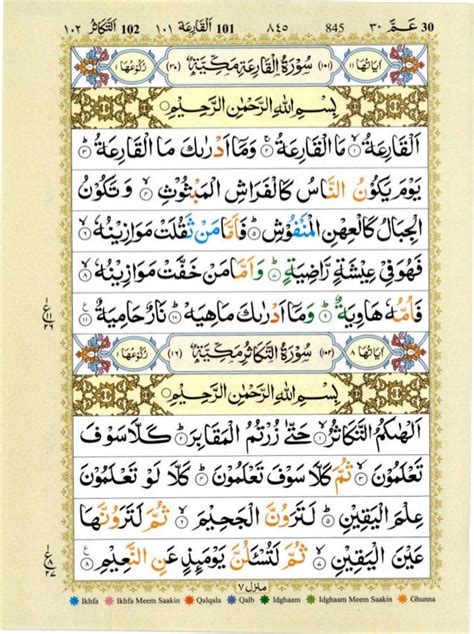 ١٠٢ التكاثر 102 ١٠١ القارعة 101 ٨٤٥ 845 ٣٠ عـمّ 30
اٰيَاتُهَا ١١ (١٠١) سُوْرَةُ الْقَارِعَةِ مَكِّيَّةٌ (٣٠) رُكُوْعُهَا ١
بِسْمِ اللهِ الرَّحْمٰنِ الرَّحِيْمِ
اَلْقَارِعَةُ ۙ ١ مَا الْقَارِعَةُ ۚ ٢ وَمَاۤ اَدْرٰىكَ مَا الْقَارِعَةُ ؕ ٣
يَوْمَ يَكُوْنُ النَّاسُ كَالْفَرَاشِ الْمَبْثُوْثِ ۙ ٤ وَتَكُوْنُ
الْجِبَالُ كَالْعِهْنِ الْمَنْفُوْشِ ؕ ٥ فَاَمَّا مَنْ ثَقُلَتْ مَوَازِيْنُهٗ ۙ ٦
فَهُوَ فِيْ عِيْشَةٍ رَّاضِيَةٍ ؕ ٧ وَاَمَّا مَنْ خَفَّتْ مَوَازِيْنُهٗ ۙ ٨
فَاُمُّهٗ هَاوِيَةٌ ؕ ٩ وَمَاۤ اَدْرٰىكَ مَا هِيَهْ ؕ ١٠ نَارٌ حَامِيَةٌ ١١
اٰيَاتُهَا ٨ (١٠٢) سُوْرَةُ التَّكَاثُرِ مَكِّيَّةٌ (١٦) رُكُوْعُهَا ١
بِسْمِ اللهِ الرَّحْمٰنِ الرَّحِيْمِ
اَلْهٰىكُمُ التَّكَاثُرُ ۙ ١ حَتّٰى زُرْتُمُ الْمَقَابِرَ ؕ ٢ كَلَّا سَوْفَ
تَعْلَمُوْنَ ۙ ٣ ثُمَّ كَلَّا سَوْفَ تَعْلَمُوْنَ ؕ ٤ كَلَّا لَوْ تَعْلَمُوْنَ
عِلْمَ الْيَقِيْنِ ؕ ٥ لَتَرَوُنَّ الْجَحِيْمَ ۙ ٦ ثُمَّ لَتَرَوُنَّهَا
عَيْنَ الْيَقِيْنِ ۙ ٧ ثُمَّ لَتُسْـَٔلُنَّ يَوْمَئِذٍ عَنِ النَّعِيْمِ ٨
منزل ٧
Ikhfa Ikhfa Meem Saakin Qalqala Qalb Idghaam Idghaam Meem Saakin Ghunna